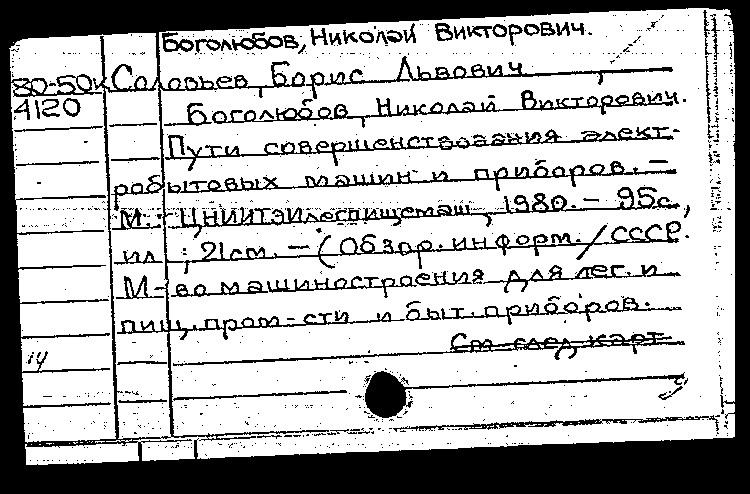 Боголюбов, Николай Викторович.
80-50к Соловьев, Борис Львович,
4120 Боголюбов, Николай Викторович.
Пути совершенствования элект-
робытовых машин и приборов. –
М.: ЦНИИТЭИлегпищемаш, 1980. – 95с.,
ил.; 21см. – (Обзор. информ./СССР.
М-во машиностроения для лег. и
пищ. пром-сти и быт. приборов.
14 См. след. карт.